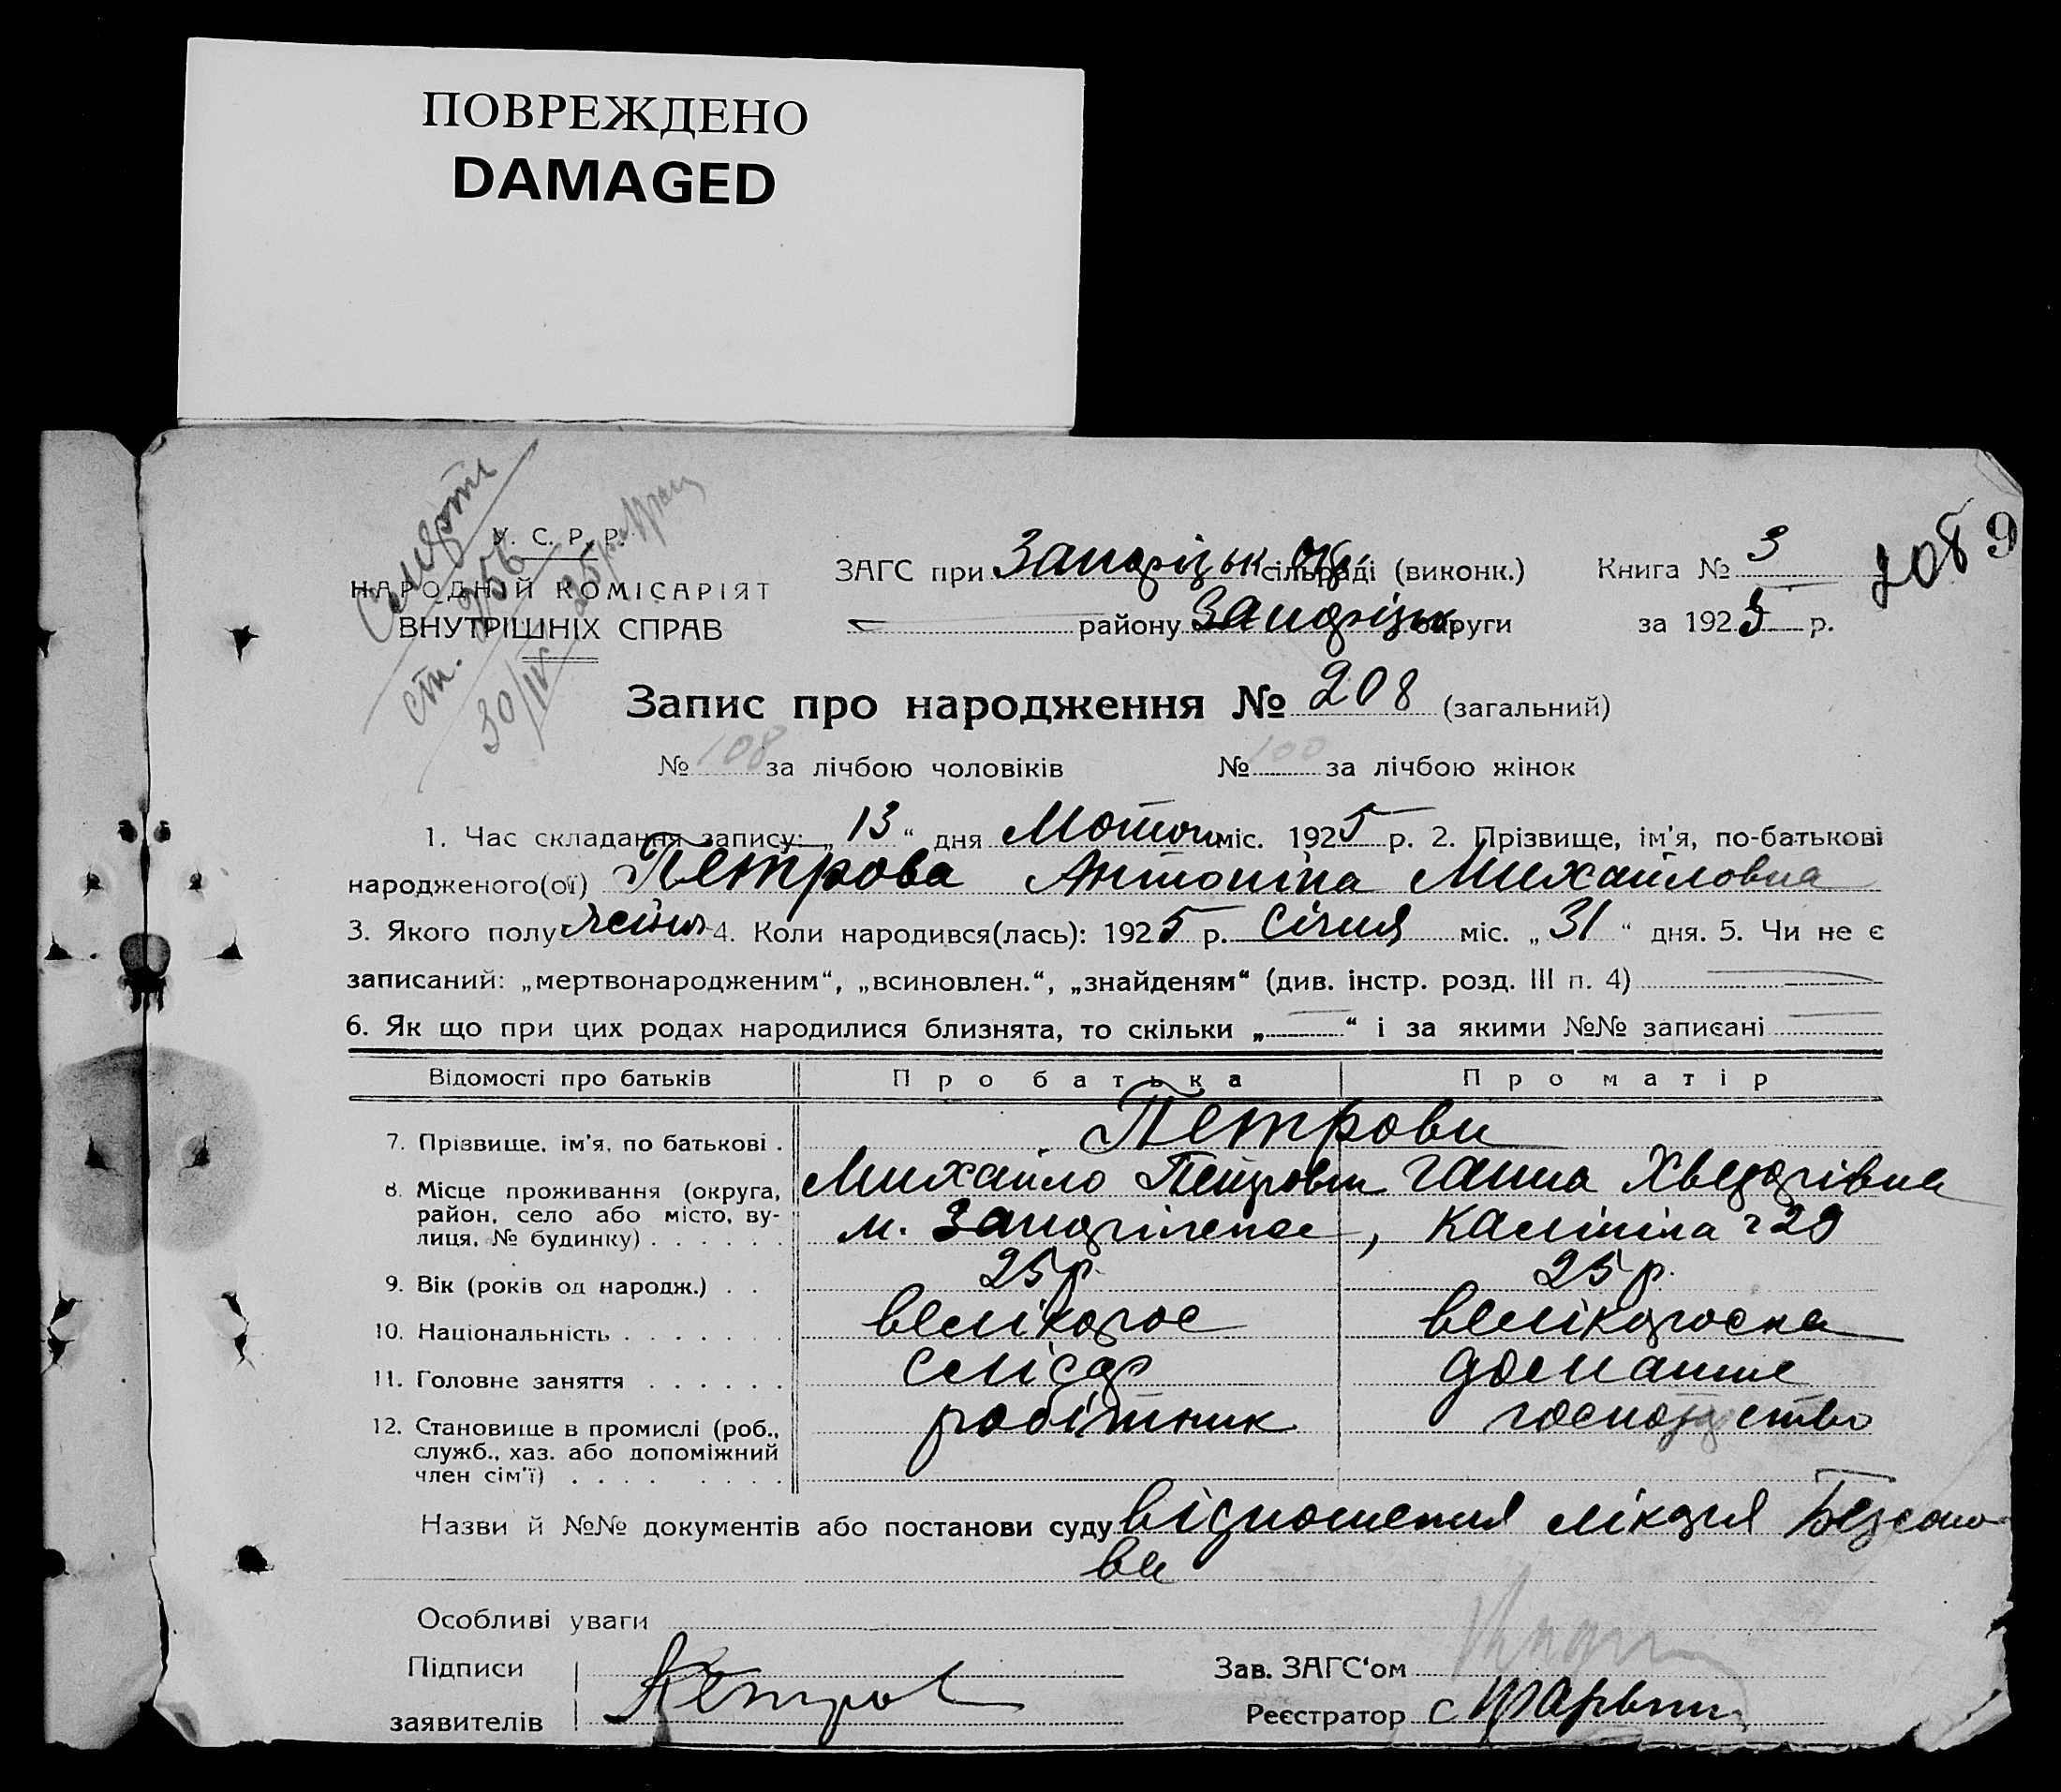 ПОВРЕЖДЕНО
DAMAGED
Смерти
ст. 956
30/IV 25 р.
У. С. Р. Р.
НАРОДНІЙ КОМІСАРІЯТ
ВНУТРІШНІХ СПРАВ
ЗАГС при Запоріцьк окр. сільраді (виконк.)
району Запоріцьк округи
Книга № 3
за 1925 р.
208 9
Запис про народження № 208 (загальний)
№ 108 за лічбою чоловіків № 100 за лічбою жінок
1. Час складання запису: „ 13 “ дня Лютого міс. 1925 р. 2. Прізвище, ім'я, по-батькові
народженого(ої) Петрова Антоніна Михайловна
3. Якого полу 4. Коли народився(лась): 1925 р. Січня міс. „ 31 “ дня. 5. Чи не є
записаний: „мертвонародженим“, „всиновлен.“, „знайденям“ (див. інстр. розд. III п. 4)
6. Як що при цих родах народилися близнята, то скільки „ “ і за якими №№ записані
Відомості про батьків Про батька Про матір
7. Прізвище, ім'я, по батькові . Петрови
Михайло Петрович Ганна Хведорівна
8. Місце проживання (округа, район, село або місто, вулиця, № будинку) . . . . . . м. Запоріжжє, Калініна 29
9. Вік (років од народж.) . . 25 р. 25 р.
10. Національність . . . . . . . великорос великороска
11. Головне заняття . . . . . . слісар домашнє
12. Становище в промислі (роб., робітник господство
служб., хаз. або допоміжний
член сім'ї) . . . . . . . .
Назви й №№ документів або постанови суду відношення лікаря Безсоно-
ва
Особливі уваги
Підписи
заявителів Петров
Зав. ЗАГС'ом
Реєстратор